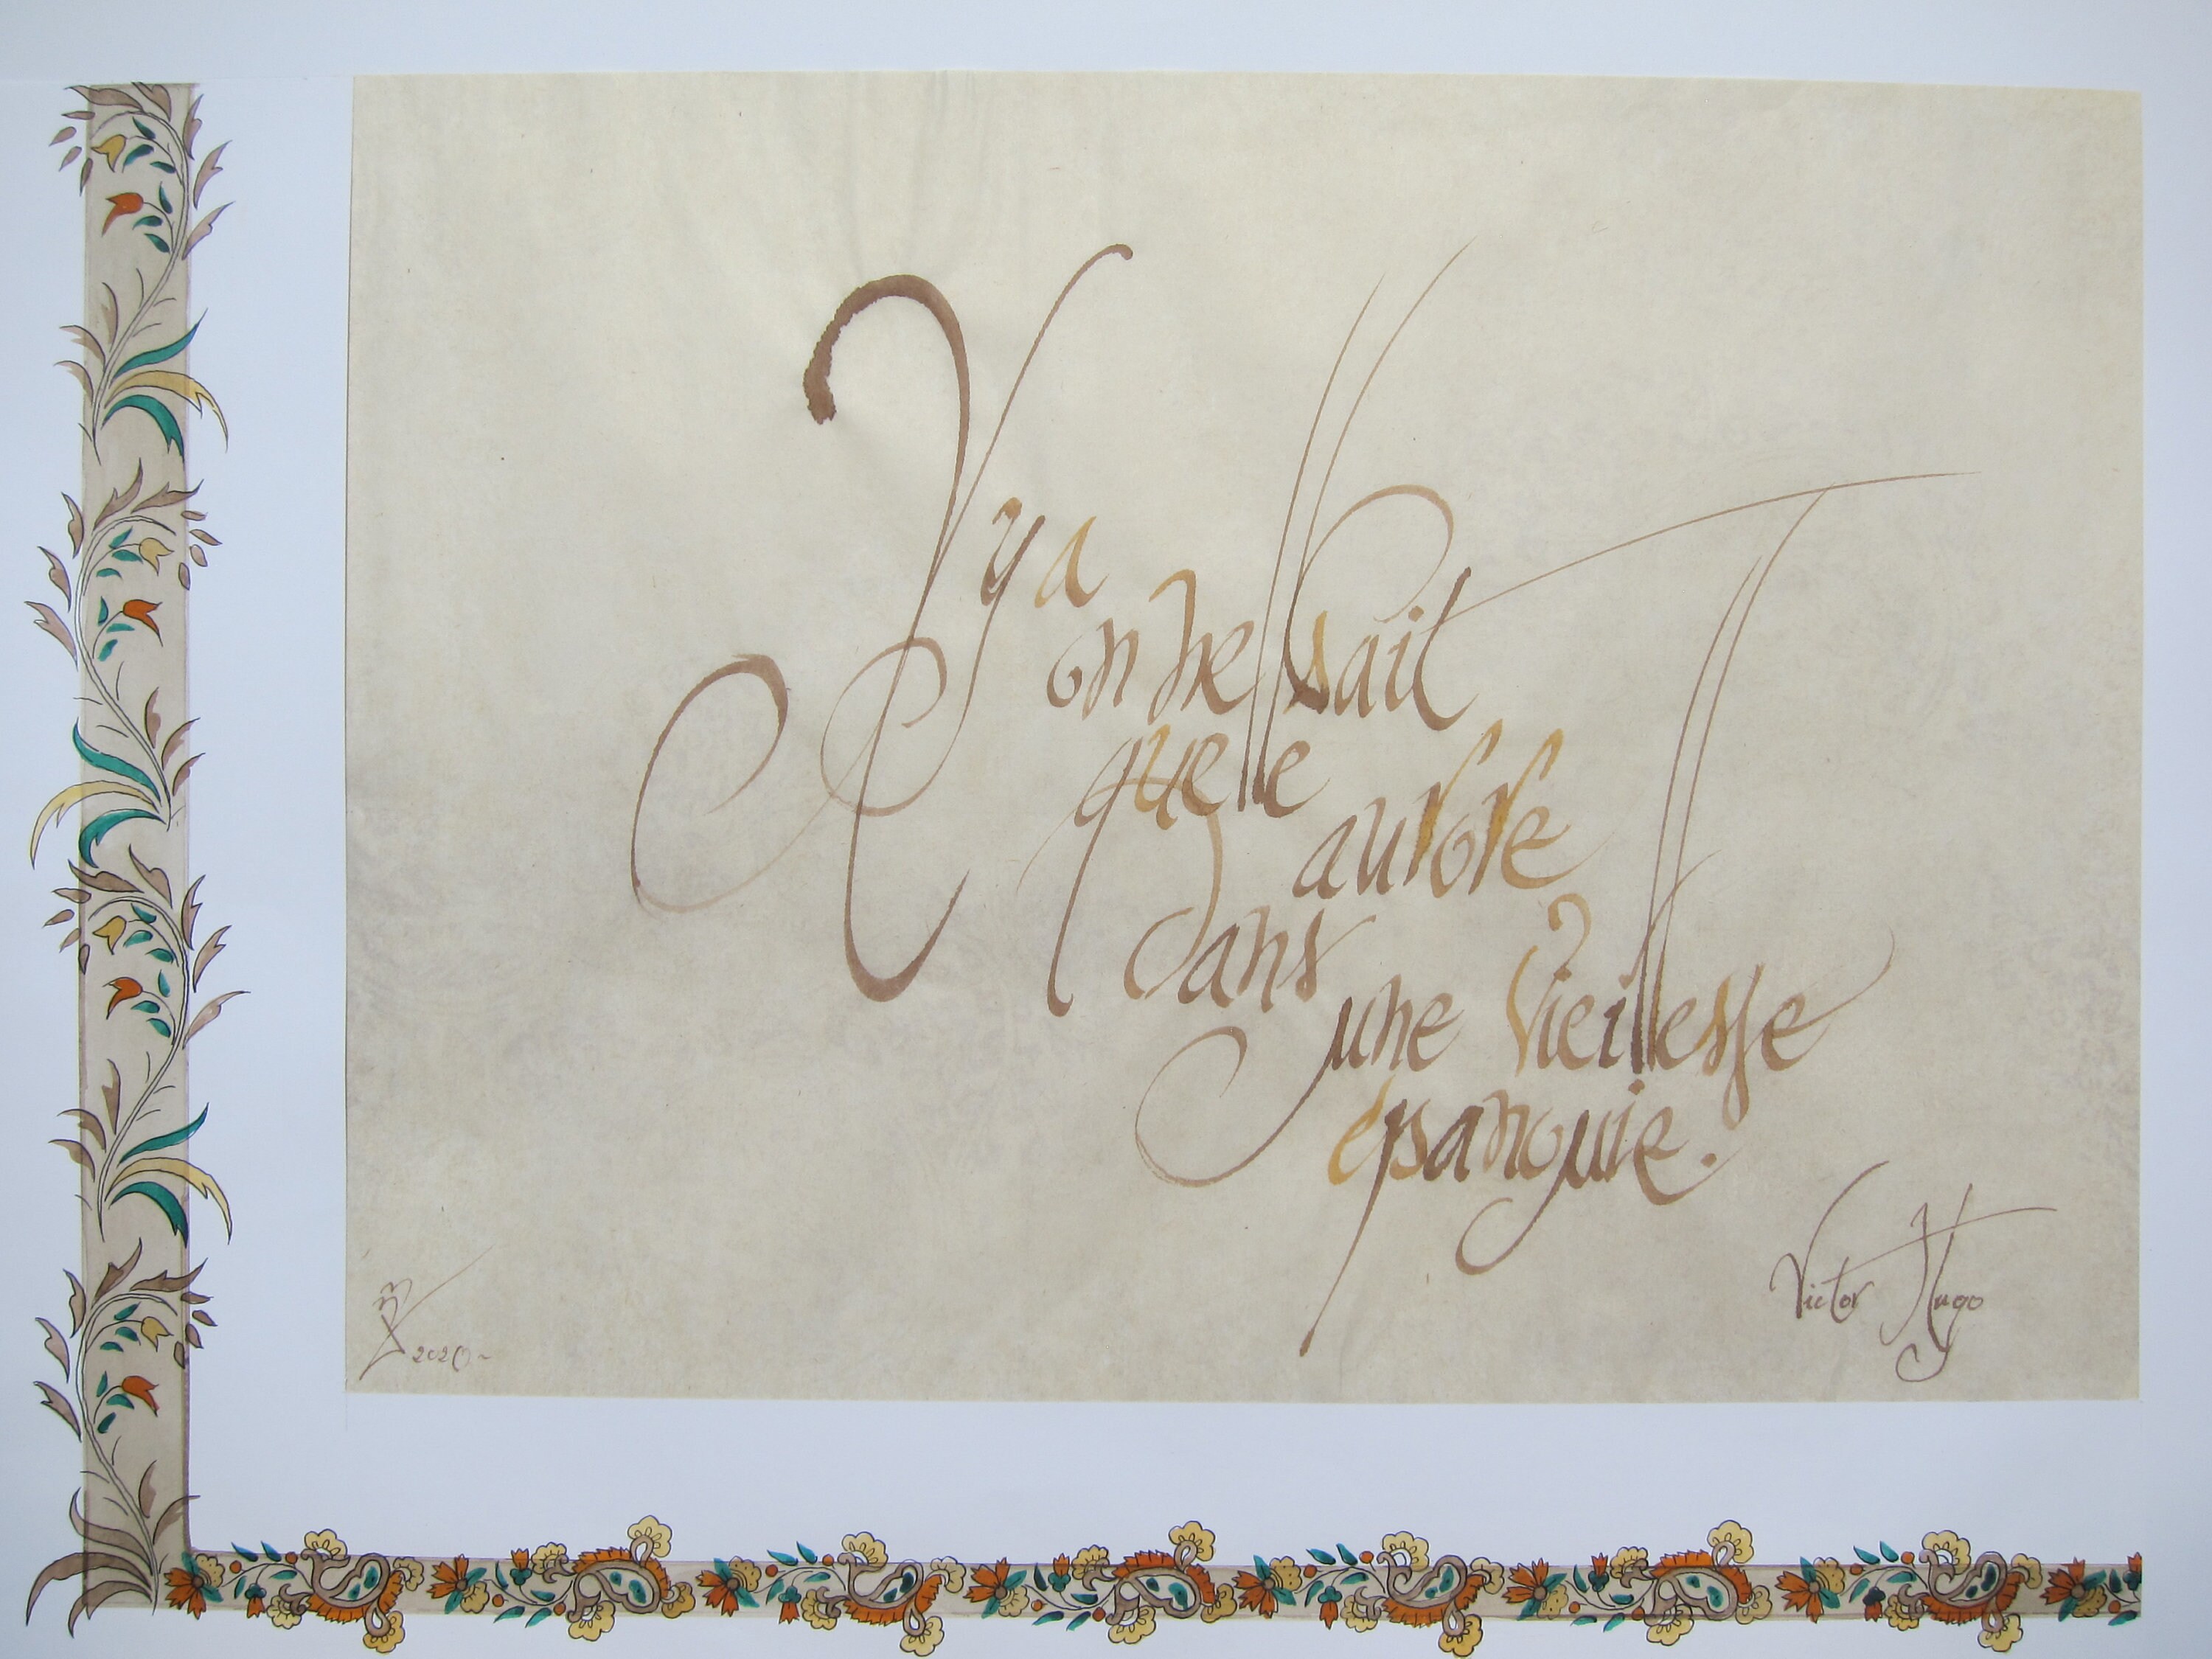 Il y a
on ne sait
quelle
aurore
dans
une vieillesse
épanouie.
Victor Hugo
2020